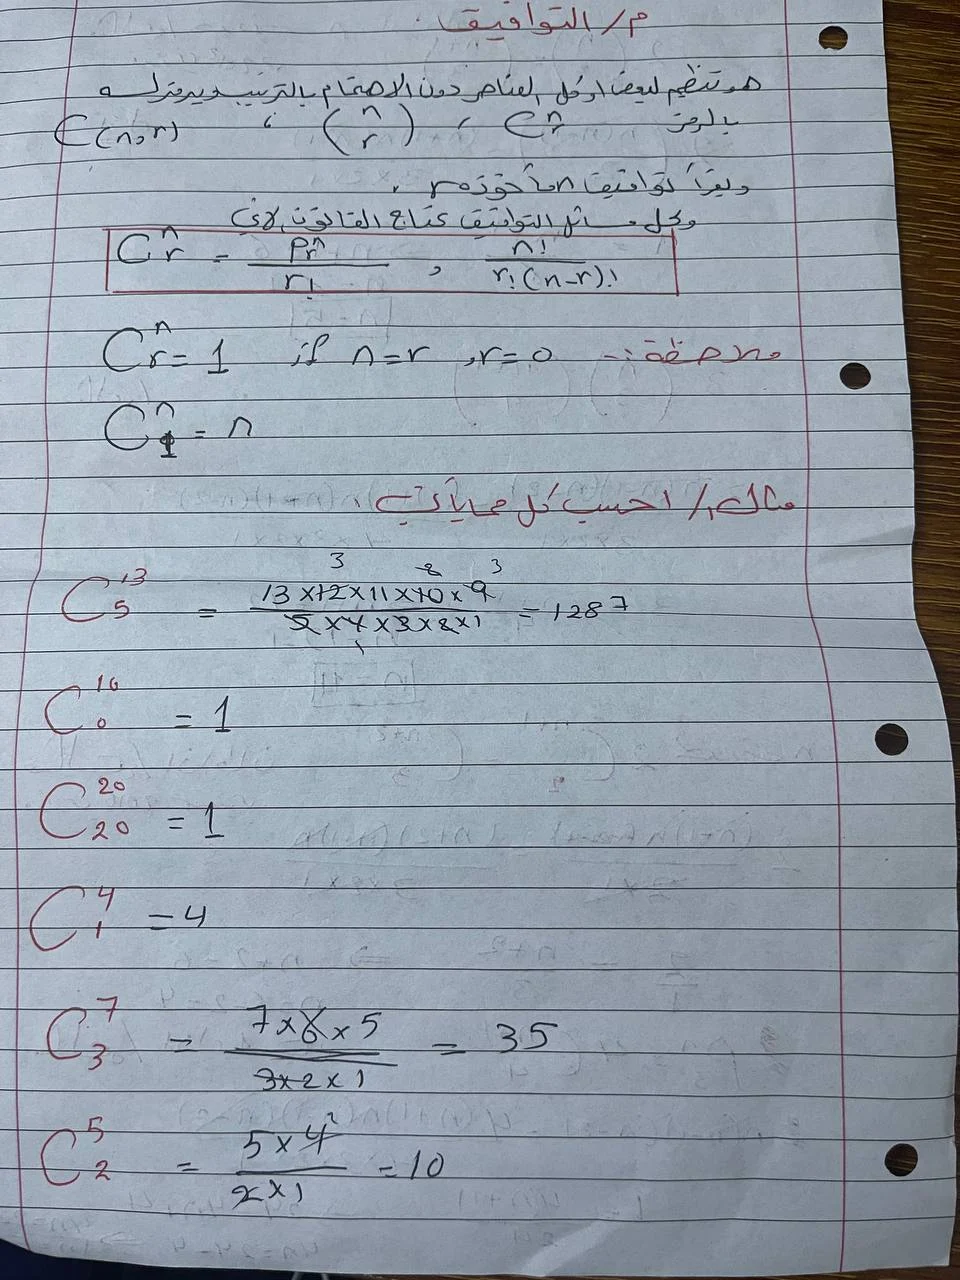 م/ التوافيق.
هو تنظيم لبعض او كل العناصر دون الاهتمام بالترتيب ويرمز له
بالرمز C^n_r , (n r) , C(n,r)
ويقرأ توافيق n مأخوذة r .
وكل مسائل التوافيق تحتاج القانون الاتي
C^n_r = P^n_r / r! , n! / r!(n-r)!
ملاحظة :- C^n_r = 1 if n=r , r=0
C^n_1 = n
مثال/ احسب كل مما يأتي.
C^13_5 = 13×12×11×10×9 / 5×4×3×2×1 = 1287
C^16_0 = 1
C^20_20 = 1
C^4_1 = 4
C^7_3 = 7×6×5 / 3×2×1 = 35
C^5_2 = 5×4 / 2×1 = 10